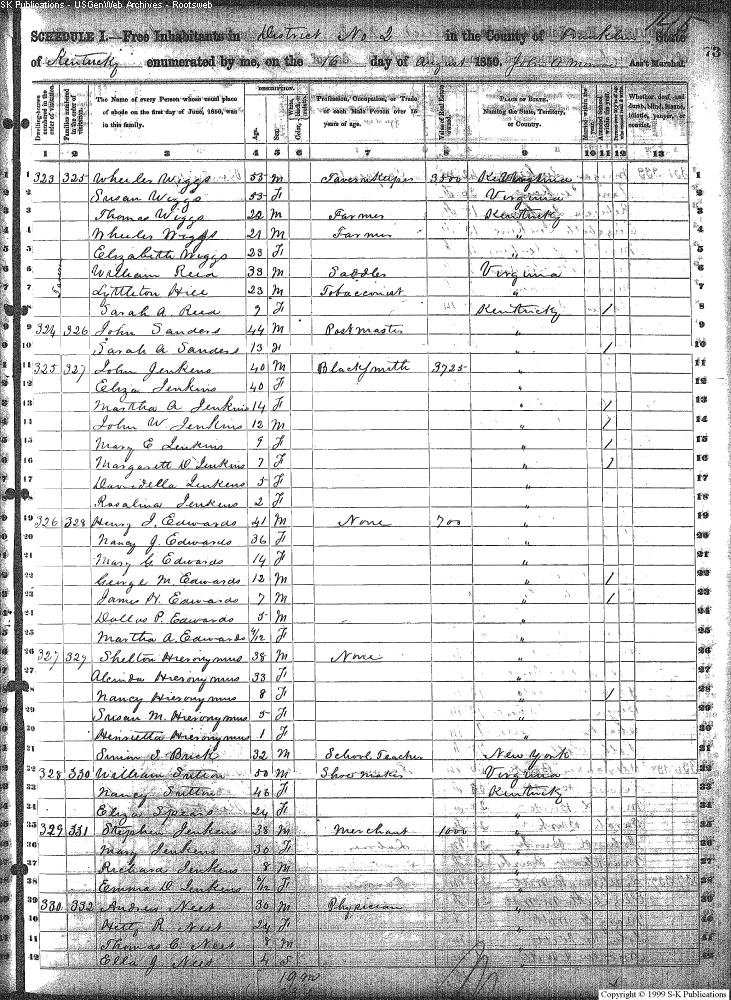 SK Publications - USGenWeb Archives - Rootsweb
SCHEDULE I.—Free Inhabitants in District No 2 in the County of State
of Kentucky enumerated by me, on the 16 day of August 1850. John A Ass't Marshal.
73
Dwelling-houses numbered in the order of visitation.
Families numbered in the order of visitation.
The Name of every Person whose usual place of abode on the first day of June, 1850, was in this family.
DESCRIPTION.
Age.
Sex.
White, black, or mulatto.
Color
Profession, Occupation, or Trade of each Male Person over 15 years of age.
Value of Real Estate owned.
PLACE OF BIRTH. Naming the State, Territory, or Country.
Married within the year.
Attended School within the year.
Whether deaf and dumb, blind, insane, idiotic, pauper, or convict.
1 2 3 4 5 6 7 8 9 10 11 12 13
1 323 325 Wheeler Wiggs 55 M Tavern Keeper 3500 Virginia 1
2 Susan Wiggs 53 F Virginia 2
3 Thomas Wiggs 22 M Farmer Kentucky 3
4 Wheeler Wiggs 21 M Farmer " 4
5 Elizabeth Wiggs 23 F " 5
6 William Reed 33 M Saddler Virginia 6
7 Lyttleton Hice 23 M Tobacconist " 7
8 Sarah A. Reed 9 F Kentucky / 8
9 324 326 John Sanders 44 M Postmaster " 9
10 Sarah A Sanders 13 F " / 10
11 325 327 John Jenkins 40 M Blacksmith 3725 " 11
12 Eliza Jenkins 40 F " 12
13 Martha A Jenkins 14 F " / 13
14 John W Jenkins 12 M " / 14
15 Mary E Jenkins 9 F " / 15
16 Margarett D Jenkins 7 F " / 16
17 Davidella Jenkins 5 F " 17
18 Rosalina Jenkins 2 F " 18
19 326 328 Henry J. Edwards 41 M None 700 " 19
20 Nancy J. Edwards 36 F " 20
21 Mary G Edwards 14 F " 21
22 George M. Edwards 12 M " / 22
23 James H. Edwards 7 M " / 23
24 Dallas P. Edwards 5 M " 24
25 Martha A. Edwards /12 F " 25
26 327 329 Shelton Hieronymus 38 M None " 26
27 Alcinda Hieronymus 33 F " 27
28 Nancy Hieronymus 8 F " / 28
29 Susan M. Hieronymus 5 F " 29
30 Henrietta Hieronymus 1 F " 30
31 Simon S Brick 32 M School Teacher New York 31
32 328 330 William Sutton 50 M Shoe maker Virginia 32
33 Nancy Sutton 46 F Kentucky 33
34 Eliza Spears 24 F " 34
35 329 331 Stephen Jenkins 38 M Merchant 1000 " 35
36 Mary Jenkins 30 F " 36
37 Richard Jenkins 8 M " 37
38 Emma D Jenkins /12 F " 38
39 330 332 Andrew Neet 30 M Physician " 39
40 Hetty R Neet 24 F " 40
41 Thomas C. Neet 8 M " 41
42 Ella J Neet 4 F " 42
19 m
Copyright © 1999 S-K Publications